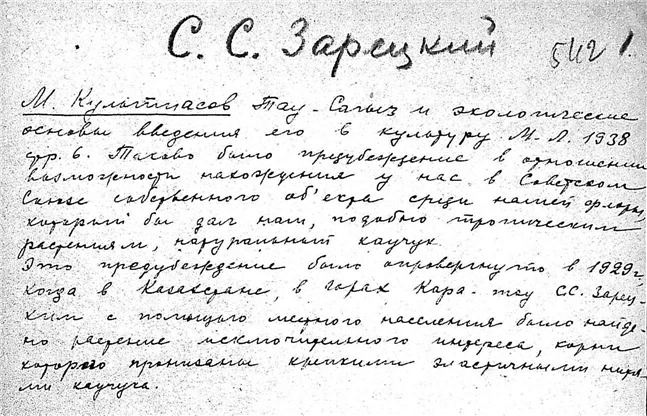 С. С. Зарецкий 542 1.
М. Культиасов Тау-Сагыз и экологические
основы введения его в культуру М-Л. 1938
стр. 6. Таково было предубеждение в отношении
возможности нахождения у нас в Советском
Союзе собственного об'екта среди нашей флоры,
который бы дал нам, подобно тропическим
растениям, натуральный каучук.
Это предубеждение было опровергнуто в 1929 г,
когда в Казахстане, в горах Кара-тау СС. Зарец-
ким с помощью местного населения было найде-
но растение исключительного интереса, корни
которого пронизаны крепкими эластичными нитя-
ми каучука.